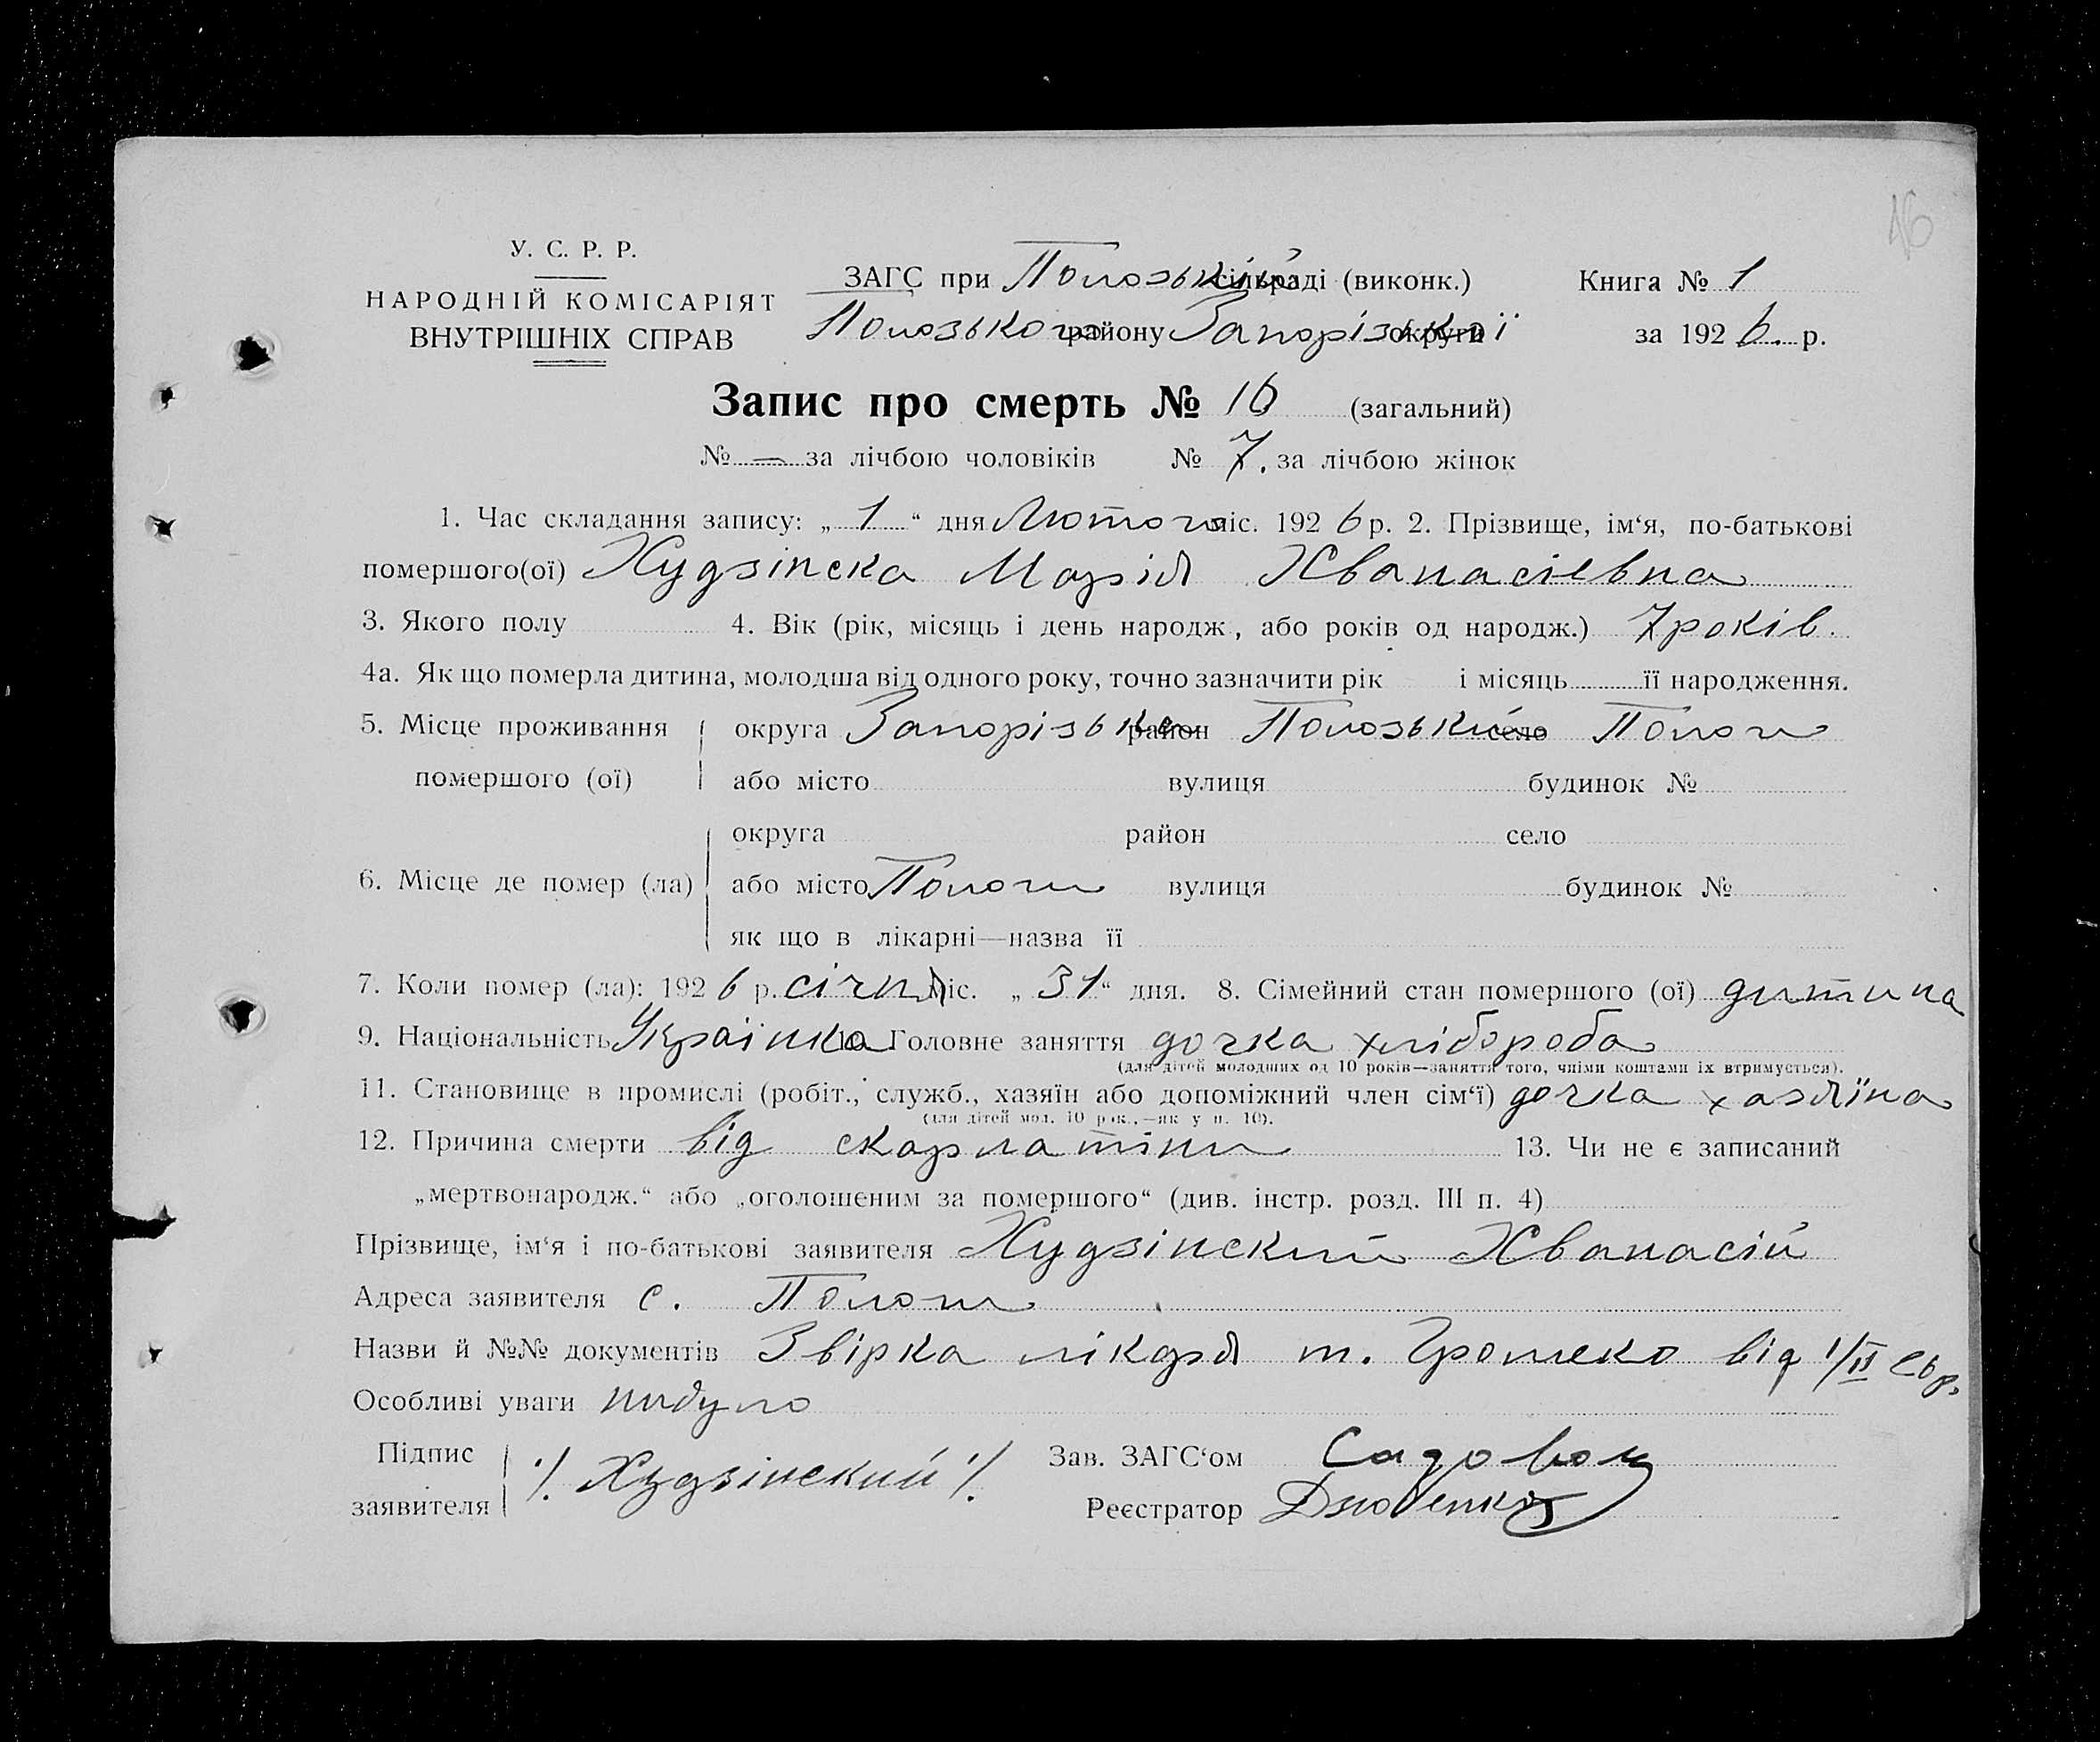 16
У. С. Р. Р.
НАРОДНІЙ КОМІСАРІЯТ
ВНУТРІШНІХ СПРАВ
ЗАГС при Полозький сільраді (виконк.)
Полозького району Запорізької округи
Книга № 1
за 1926. р.
Запис про смерть № 16 (загальний)
№ — за лічбою чоловіків № 7. за лічбою жінок
1. Час складання запису: „ 1 “ дня Лютого міс. 1926 р. 2. Прізвище, ім‘я, по-батькові
помершого(ої) Худзінска Марія Хванасіевна
3. Якого полу 4. Вік (рік, місяць і день народж., або років од народж.) 7 років.
4а. Як що померла дитина, молодша від одного року, точно зазначити рік і місяць її народження.
5. Місце проживання помершого (ої) округа Запорізька район Полозький село Пологи
або місто вулиця будинок №
округа район село
6. Місце де помер (ла) або місто Пологи вулиця будинок №
як що в лікарні—назва її
7. Коли помер (ла): 1926 р. січня міс. „ 31 “ дня. 8. Сімейний стан помершого (ої) дитина
9. Національність Українка 10. Головне заняття дочка хлібороба
(для дітей молодших од 10 років—заняття того, чиїми коштами їх втримується).
11. Становище в промислі (робіт., служб., хазяїн або допоміжний член сім‘ї) дочка хазяїна
(для дітей мол. 10 рок.,—як у п. 10).
12. Причина смерти від скарлатіни 13. Чи не є записаний
„мертвонародж.“ або „оголошеним за помершого“ (див. інстр. розд. III п. 4)
Прізвище, ім‘я і по-батькові заявителя Худзінский Хванасій
Адреса заявителя с. Пологи
Назви й №№ документів Звірка лікаря т. Громеко від 1/II сьр.
Особливі уваги небуло
Підпис заявителя ./. Худзінский ./.
Зав. ЗАГС‘ом
Реєстратор